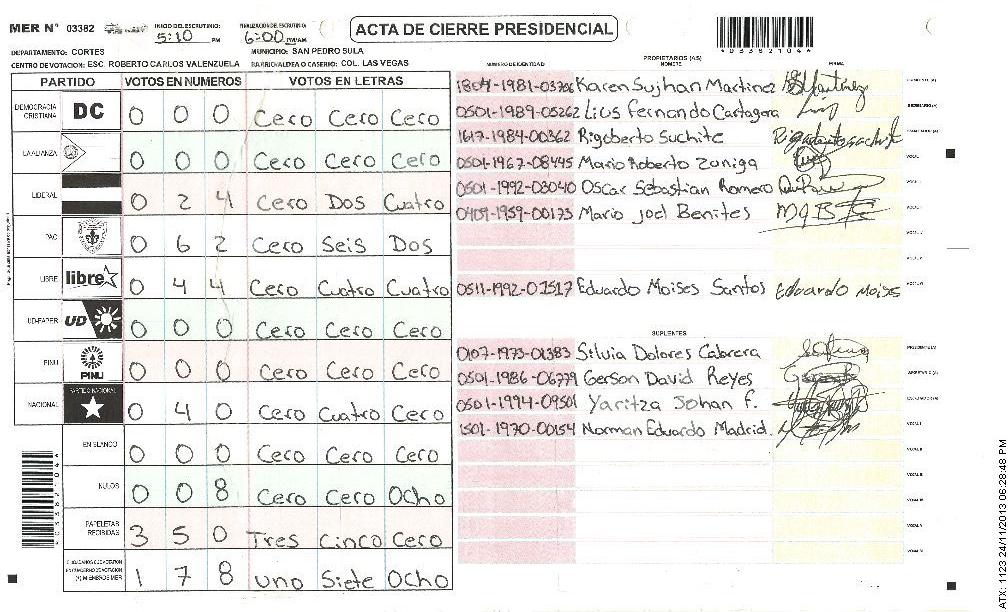 MER N° 03382 INICIO DEL ESCRUTINIO: 5:10 PM FINALIZACION DEL ESCRUTINIO: 6:00 PM/AM ACTA DE CIERRE PRESIDENCIAL
DEPARTAMENTO: CORTES MUNICIPIO: SAN PEDRO SULA
CENTRO DE VOTACION: ESC. ROBERTO CARLOS VALENZUELA BARRIO/ALDEA O CASERIO: COL. LAS VEGAS
PARTIDO VOTOS EN NUMEROS VOTOS EN LETRAS
DEMOCRACIA CRISTIANA DC 0 0 0 Cero Cero Cero
LA ALIANZA 0 0 0 Cero Cero Cero
LIBERAL 0 2 4 Cero Dos Cuatro
PAC 0 6 2 Cero Seis Dos
LIBRE libre 0 4 4 Cero Cuatro Cuatro
UD-FAPER UD 0 0 0 Cero Cero Cero
PINU PINU 0 0 0 Cero Cero Cero
NACIONAL PARTIDO NACIONAL 0 4 0 Cero Cuatro Cero
EN BLANCO 0 0 0 Cero Cero Cero
NULOS 0 0 8 Cero Cero Ocho
PAPELETAS RECIBIDAS 3 5 0 Tres Cinco Cero
1 7 8 uno Siete Ocho
NUMERO DE IDENTIDAD PROPIETARIOS (AS) NOMBRE FIRMA
1804-1981-03706 Karen Sujhan Martinez
0501-1989-05262 Lius Fernando Cartagera
1617-1984-00362 Rigoberto Suchite
0501-1967-08445 Mario Roberto Zuniga
0501-1992-03040 Oscar Sebastian Romero
0409-1959-00173 Mario Joel Benites
0511-1992-01517 Eduardo Moises Santos Eduardo Moises
SUPLENTES
0107-1973-01383 Silvia Dolores Cabrera
0501-1986-06779 Gerson David Reyes
0501-1994-09501 Yaritza Johan F.
1501-1970-00154 Norman Eduardo Madrid.
ATX: 1123 24/11/2013 06:28:48 PM